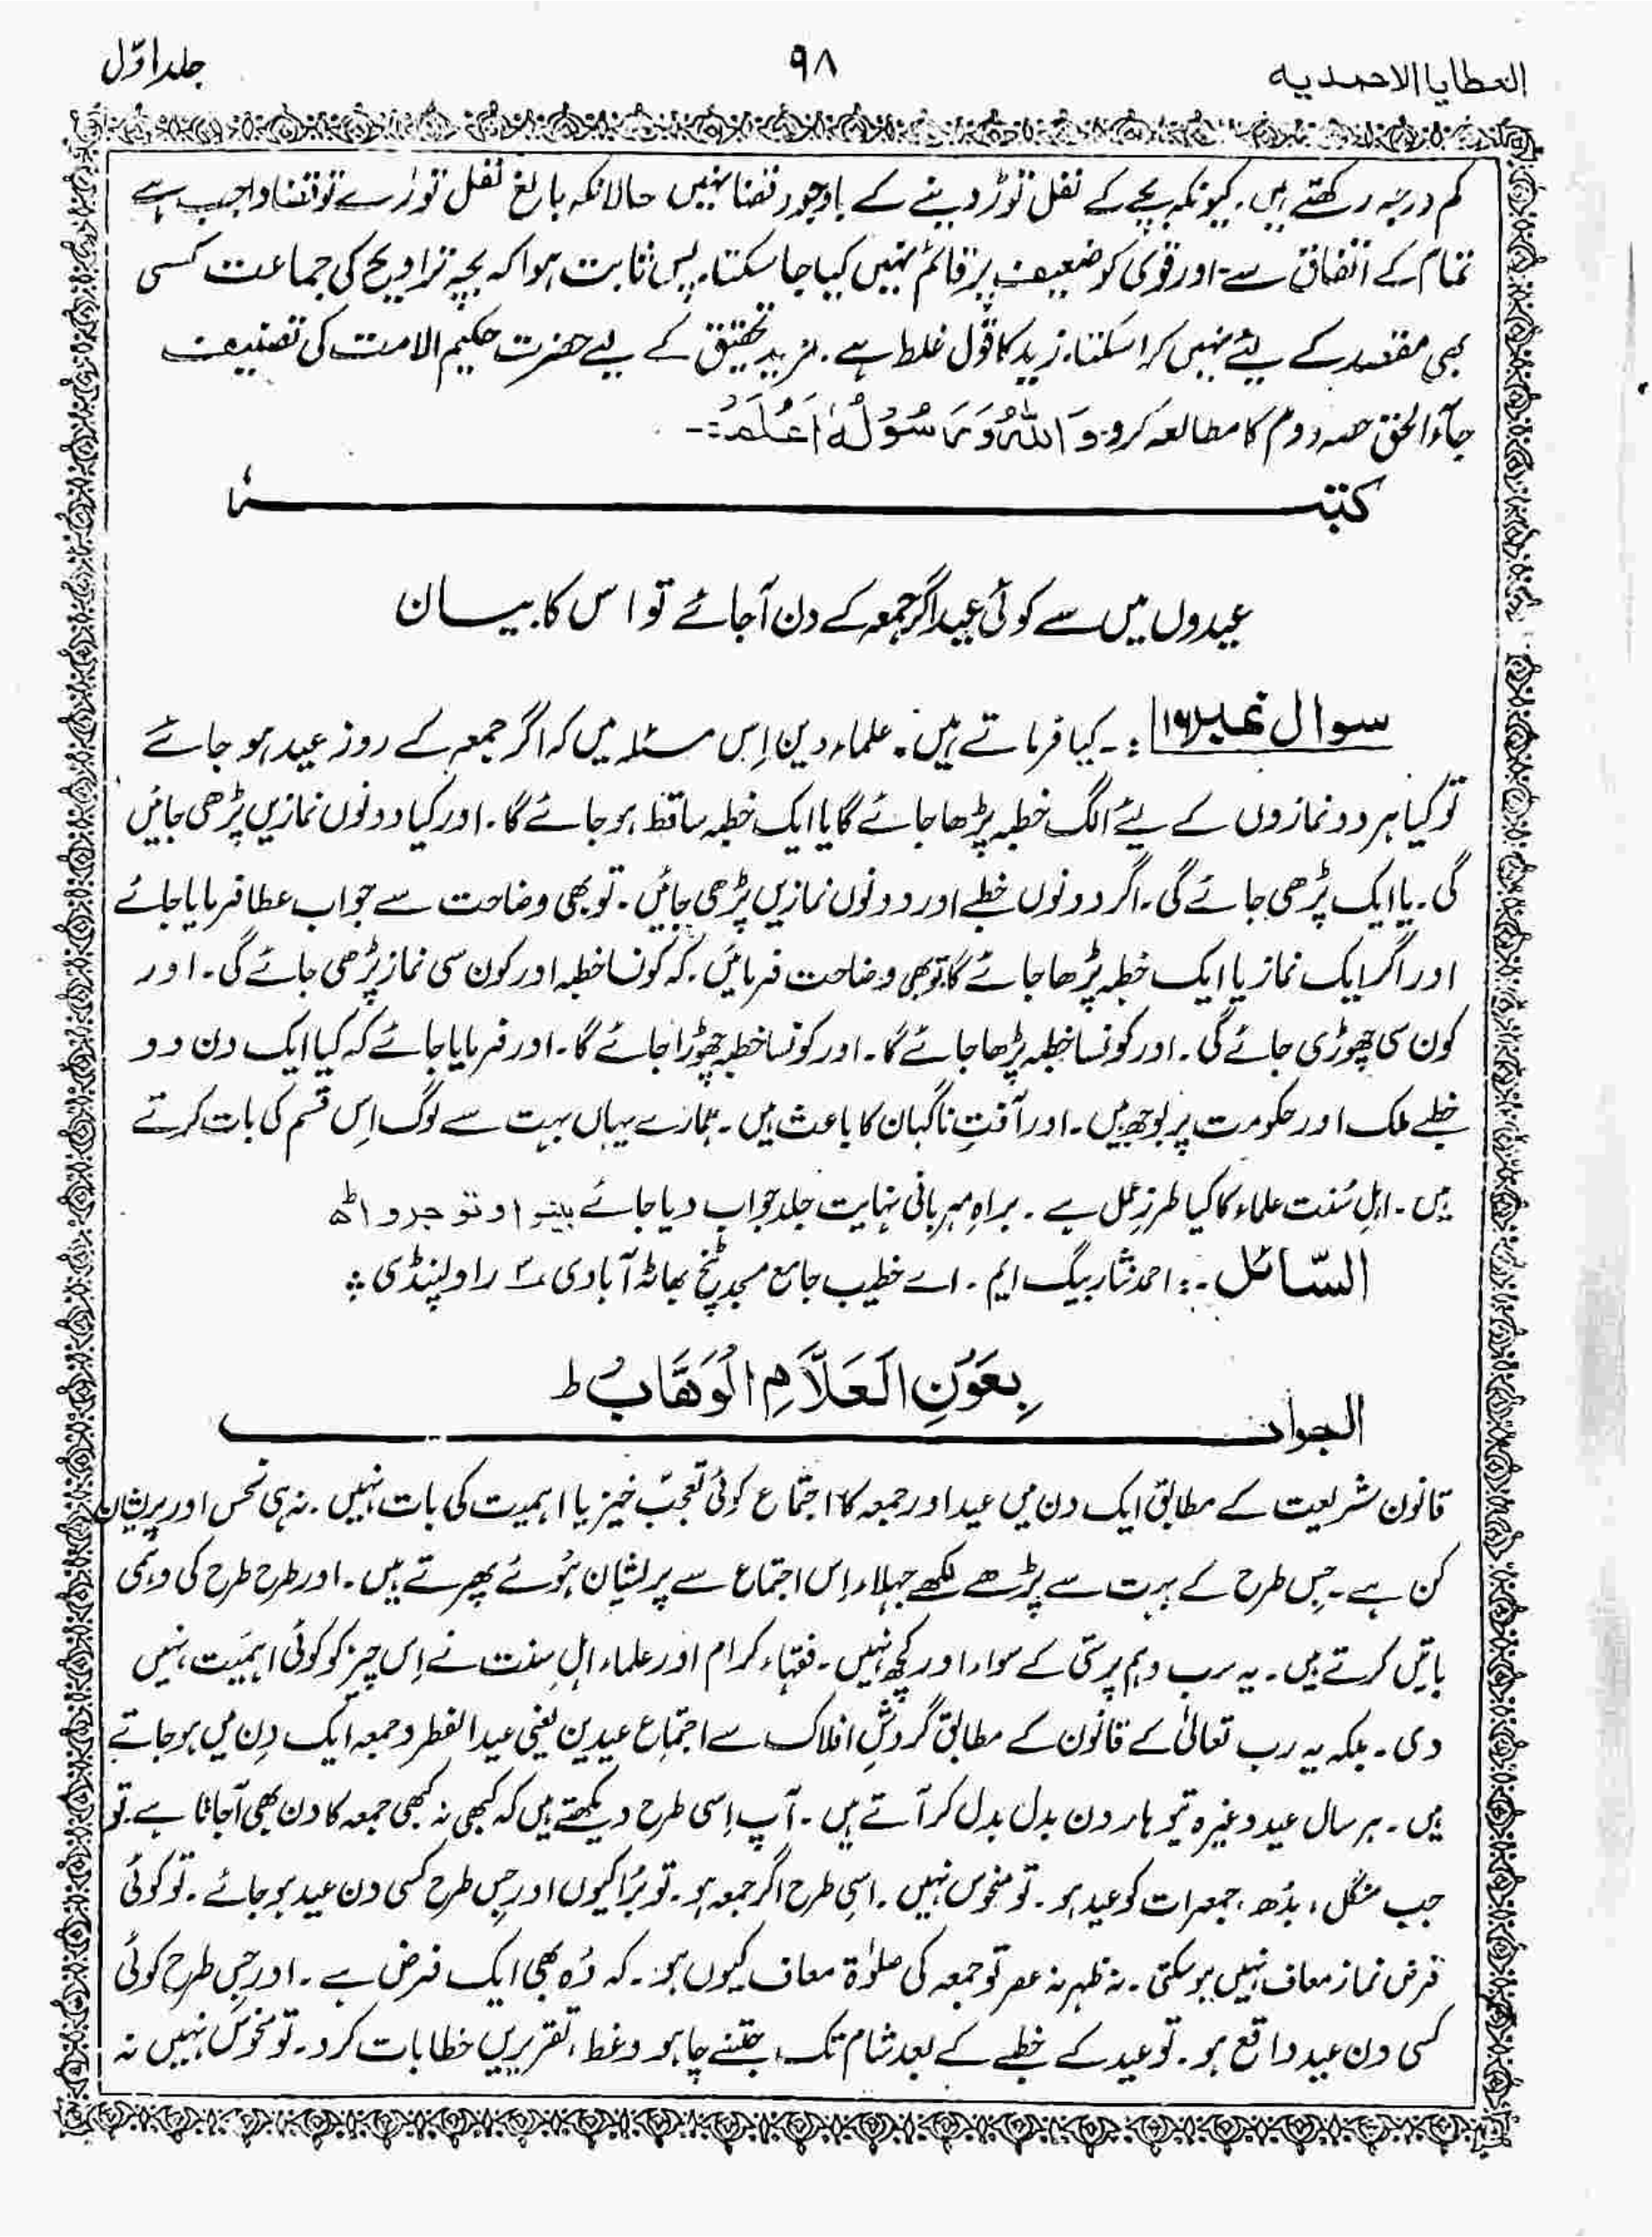 العطایا الاحمدیہ
۹۸
جلد اوّل
کم درجہ رکھتے ہیں۔ کیونکہ بچے کے نفل توڑ دینے کے باوجود قضا نہیں حالانکہ بالغ نفل توڑے تو قضا واجب ہے
تمام کے اتفاق سے۔ اور قوی کو ضعیف پر قائم نہیں کیا جا سکتا۔ پس ثابت ہوا کہ بچہ تراویح کی جماعت کسی
بھی مقصد کے لیئے نہیں کرا سکتا۔ زید کا قول غلط ہے۔ مزید تحقیق کے لیے حضرت حکیم الامت کی تصنیف
جآءَ الحق حصہ دوم کا مطالعہ کرو۔ وَاللّٰہُ وَرَسُوْلُہٗ اَعْلَمُ:۔
کتبہٗ
عیدوں میں سے کوئی عید اگر جمعہ کے دن آجائے تو اس کا بیان
سوال نمبر ۱۶:۔ کیا فرماتے ہیں۔ علماء دین اِس مسئلہ میں کہ اگر جمعہ کے روز عید ہو جائے
تو کیا ہر دو نمازوں کے لیئے الگ خطبہ پڑھا جائے گا یا ایک خطبہ ساقط ہو جائے گا۔ اور کیا دونوں نمازیں پڑھی جائیں
گی۔ یا ایک پڑھی جائے گی۔ اگر دونوں خطبے اور دونوں نمازیں پڑھی جائیں۔ تو بھی وضاحت سے جواب عطا فرمایا جائے
اور اگر ایک نماز یا ایک خطبہ پڑھا جائے گا تو بھی وضاحت فرمائیں۔ کہ کونسا خطبہ اور کون سی نماز پڑھی جائے گی۔ اور
کون سی چھوڑی جائے گی۔ اور کونسا خطبہ پڑھا جائے گا۔ اور کونسا خطبہ چھوڑا جائے گا۔ اور فرمایا جائے کہ کیا ایک دن دو
خطبے ملک اور حکومت پر بوجھ ہیں۔ اور آفتِ ناگہان کا باعث ہیں۔ ہمارے یہاں بہت سے لوگ اِس قسم کی بات کرتے
ہیں۔ اہلِ سُنت علماء کا کیا طرزِ عمل ہے۔ براہِ مہربانی نہایت جلد جواب دیا جائے بینوا و توجروا
السّائل:۔ احمد نثار بیگ ایم۔ اے خطیب جامع مسجد گنج بھاٹہ آبادی راولپنڈی
بِعَوْنِ الْعَلَّامِ الْوَھَّابُ ط
الجواب
قانون شریعت کے مطابق ایک دن میں عید اور جمعہ کا اجتماع کوئی تعجب خیز یا اہمیت کی بات نہیں۔ نہ ہی نحس اور پریشان
کن ہے۔ جس طرح کے بہت سے پڑھے لکھے جہلاء اِس اجتماع سے پریشان ہُوئے پھرتے ہیں۔ اور طرح طرح کی وہمی
باتیں کرتے ہیں۔ یہ سب وہم پرستی کے سواء اور کچھ نہیں۔ فقہاء کرام اور علماء اہلِ سنت نے اِس چیز کو کوئی اہمیَت نہیں
دی۔ بلکہ یہ رب تعالیٰ کے قانُون کے مطابق گردشِ افلاک سے اجتماعِ عیدین یعنی عید الفطر و جمعہ ایک دِن میں ہو جاتے
ہیں۔ ہر سال عید وغیرہ تیوہار دن بدل بدل کر آتے ہیں۔ آپ اِسی طرح دیکھتے ہیں کہ کبھی نہ کبھی جمعہ کا دن بھی آجاتا ہے۔ تو
جب منگل، بدُھ، جمعرات کو عید ہو۔ تو منحوس نہیں۔ اسی طرح اگر جمعہ ہو۔ تو بُرا کیوں اور جس طرح کسی دن عید ہو جائے۔ تو کوئی
فرض نماز معاف نہیں ہو سکتی۔ نہ ظہر نہ عصر تو جمعہ کی صلوٰۃ معاف کیوں ہو۔ کہ وُہ بھی ایک فرض ہے۔ اور جس طرح کوئی
کسی دن عید واقع ہو۔ تو عید کے خطبے کے بعد شام تک، جتنے چاہو وعظ، تقریریں خطابات کرو۔ تو منحوس نہیں نہ